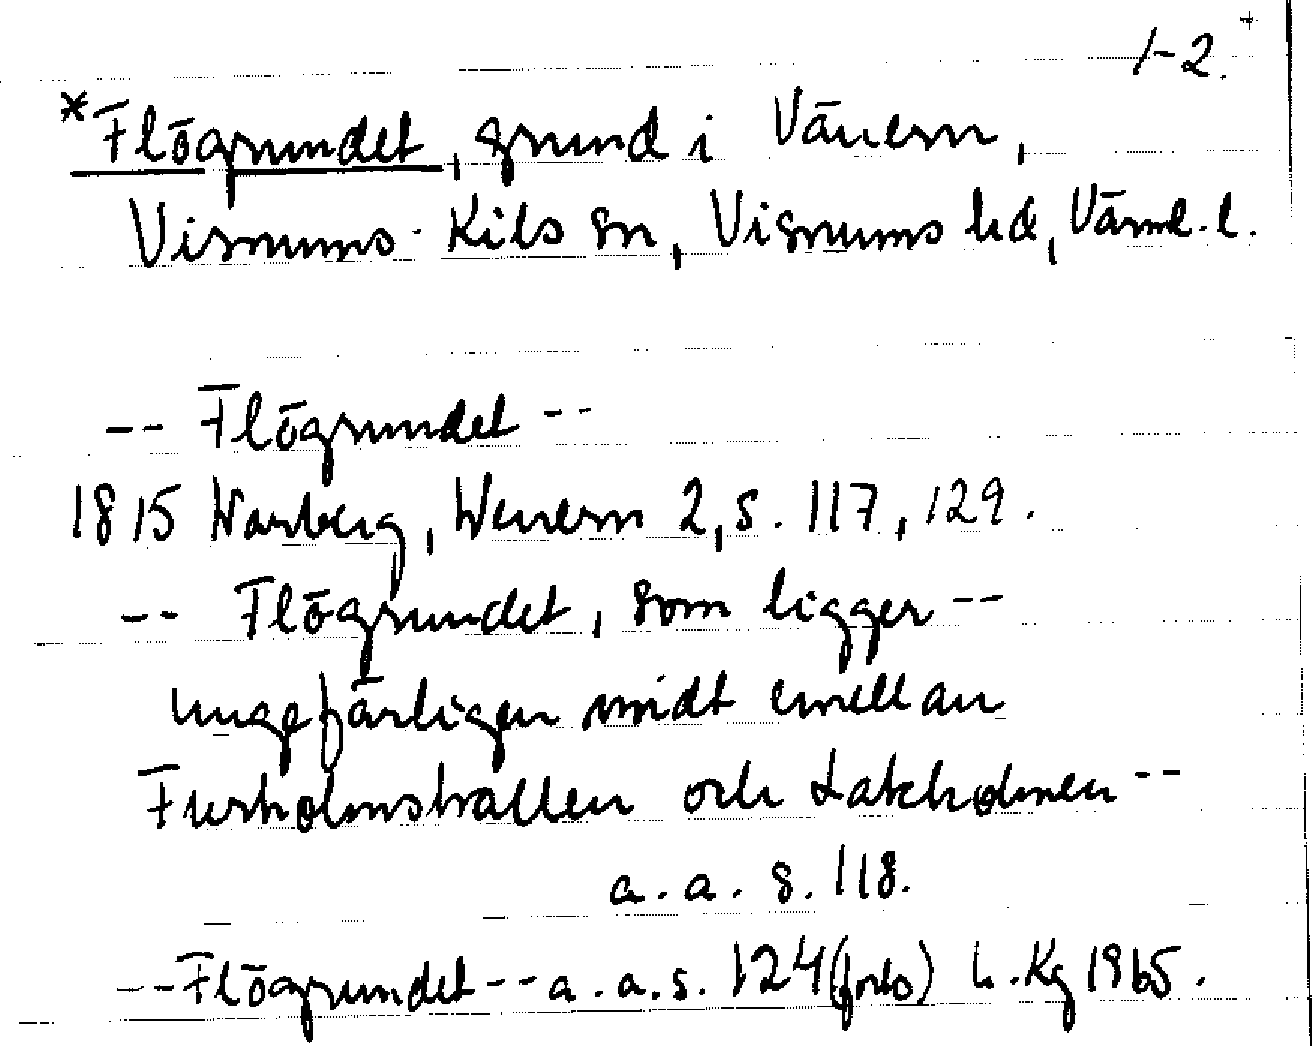 1-2.+
*Flögrundet, grund i Vänern,
Visnums-Kils sn, Visnums hd, Värml. l.
-- Flögrundet --
1815 Warberg, Wenern 2, s. 117, 129.
-- Flögrundet, som ligger --
ungefärligen midt emellan
Furholmshallen och Lakholmen --
a. a. s. 118.
-- Flögrundet -- a. a. s. 124 (forts) L. Kg 1965.